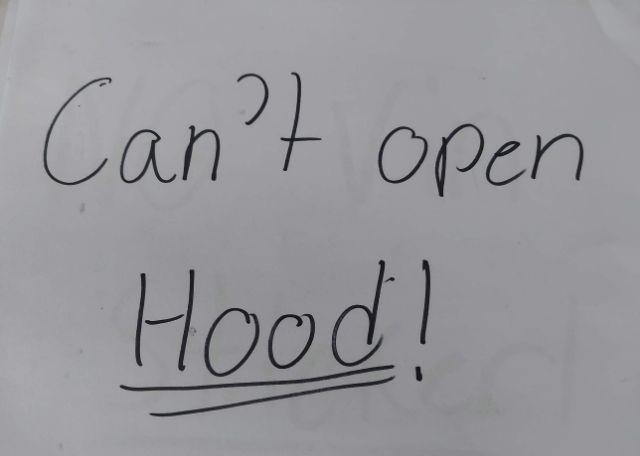 Can't open
Hood!